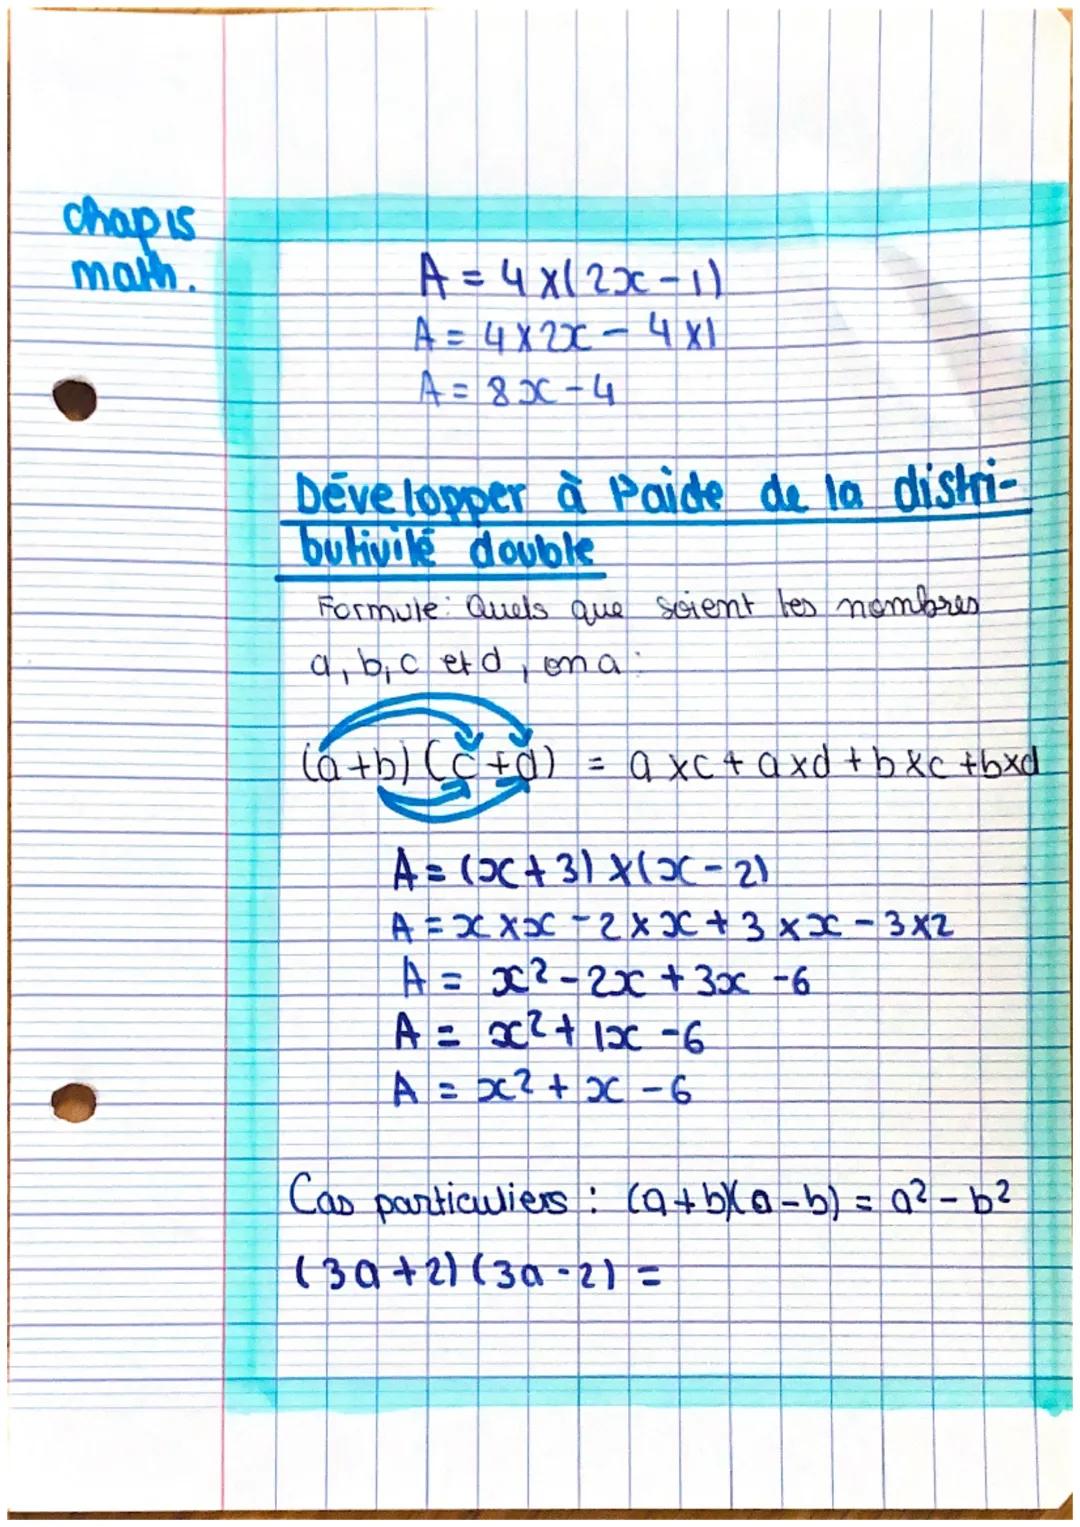 chap 15
math.
A = 4 x ( 2x - 1 )
A = 4 x 2x - 4 x 1
A = 8x - 4
Développer à l'aide de la distri-
butivité double
Formule : Quels que soient les nombres
a, b, c et d, on a :
(a + b) (c + d) = a x c + a x d + b x c + b x d
A = (x + 3) x (x - 2)
A = x x x - 2 x x + 3 x x - 3 x 2
A = x² - 2x + 3x - 6
A = x² + 1x - 6
A = x² + x - 6
Cas particuliers : (a + b)(a - b) = a² - b²
(3a + 2) (3a - 2) =